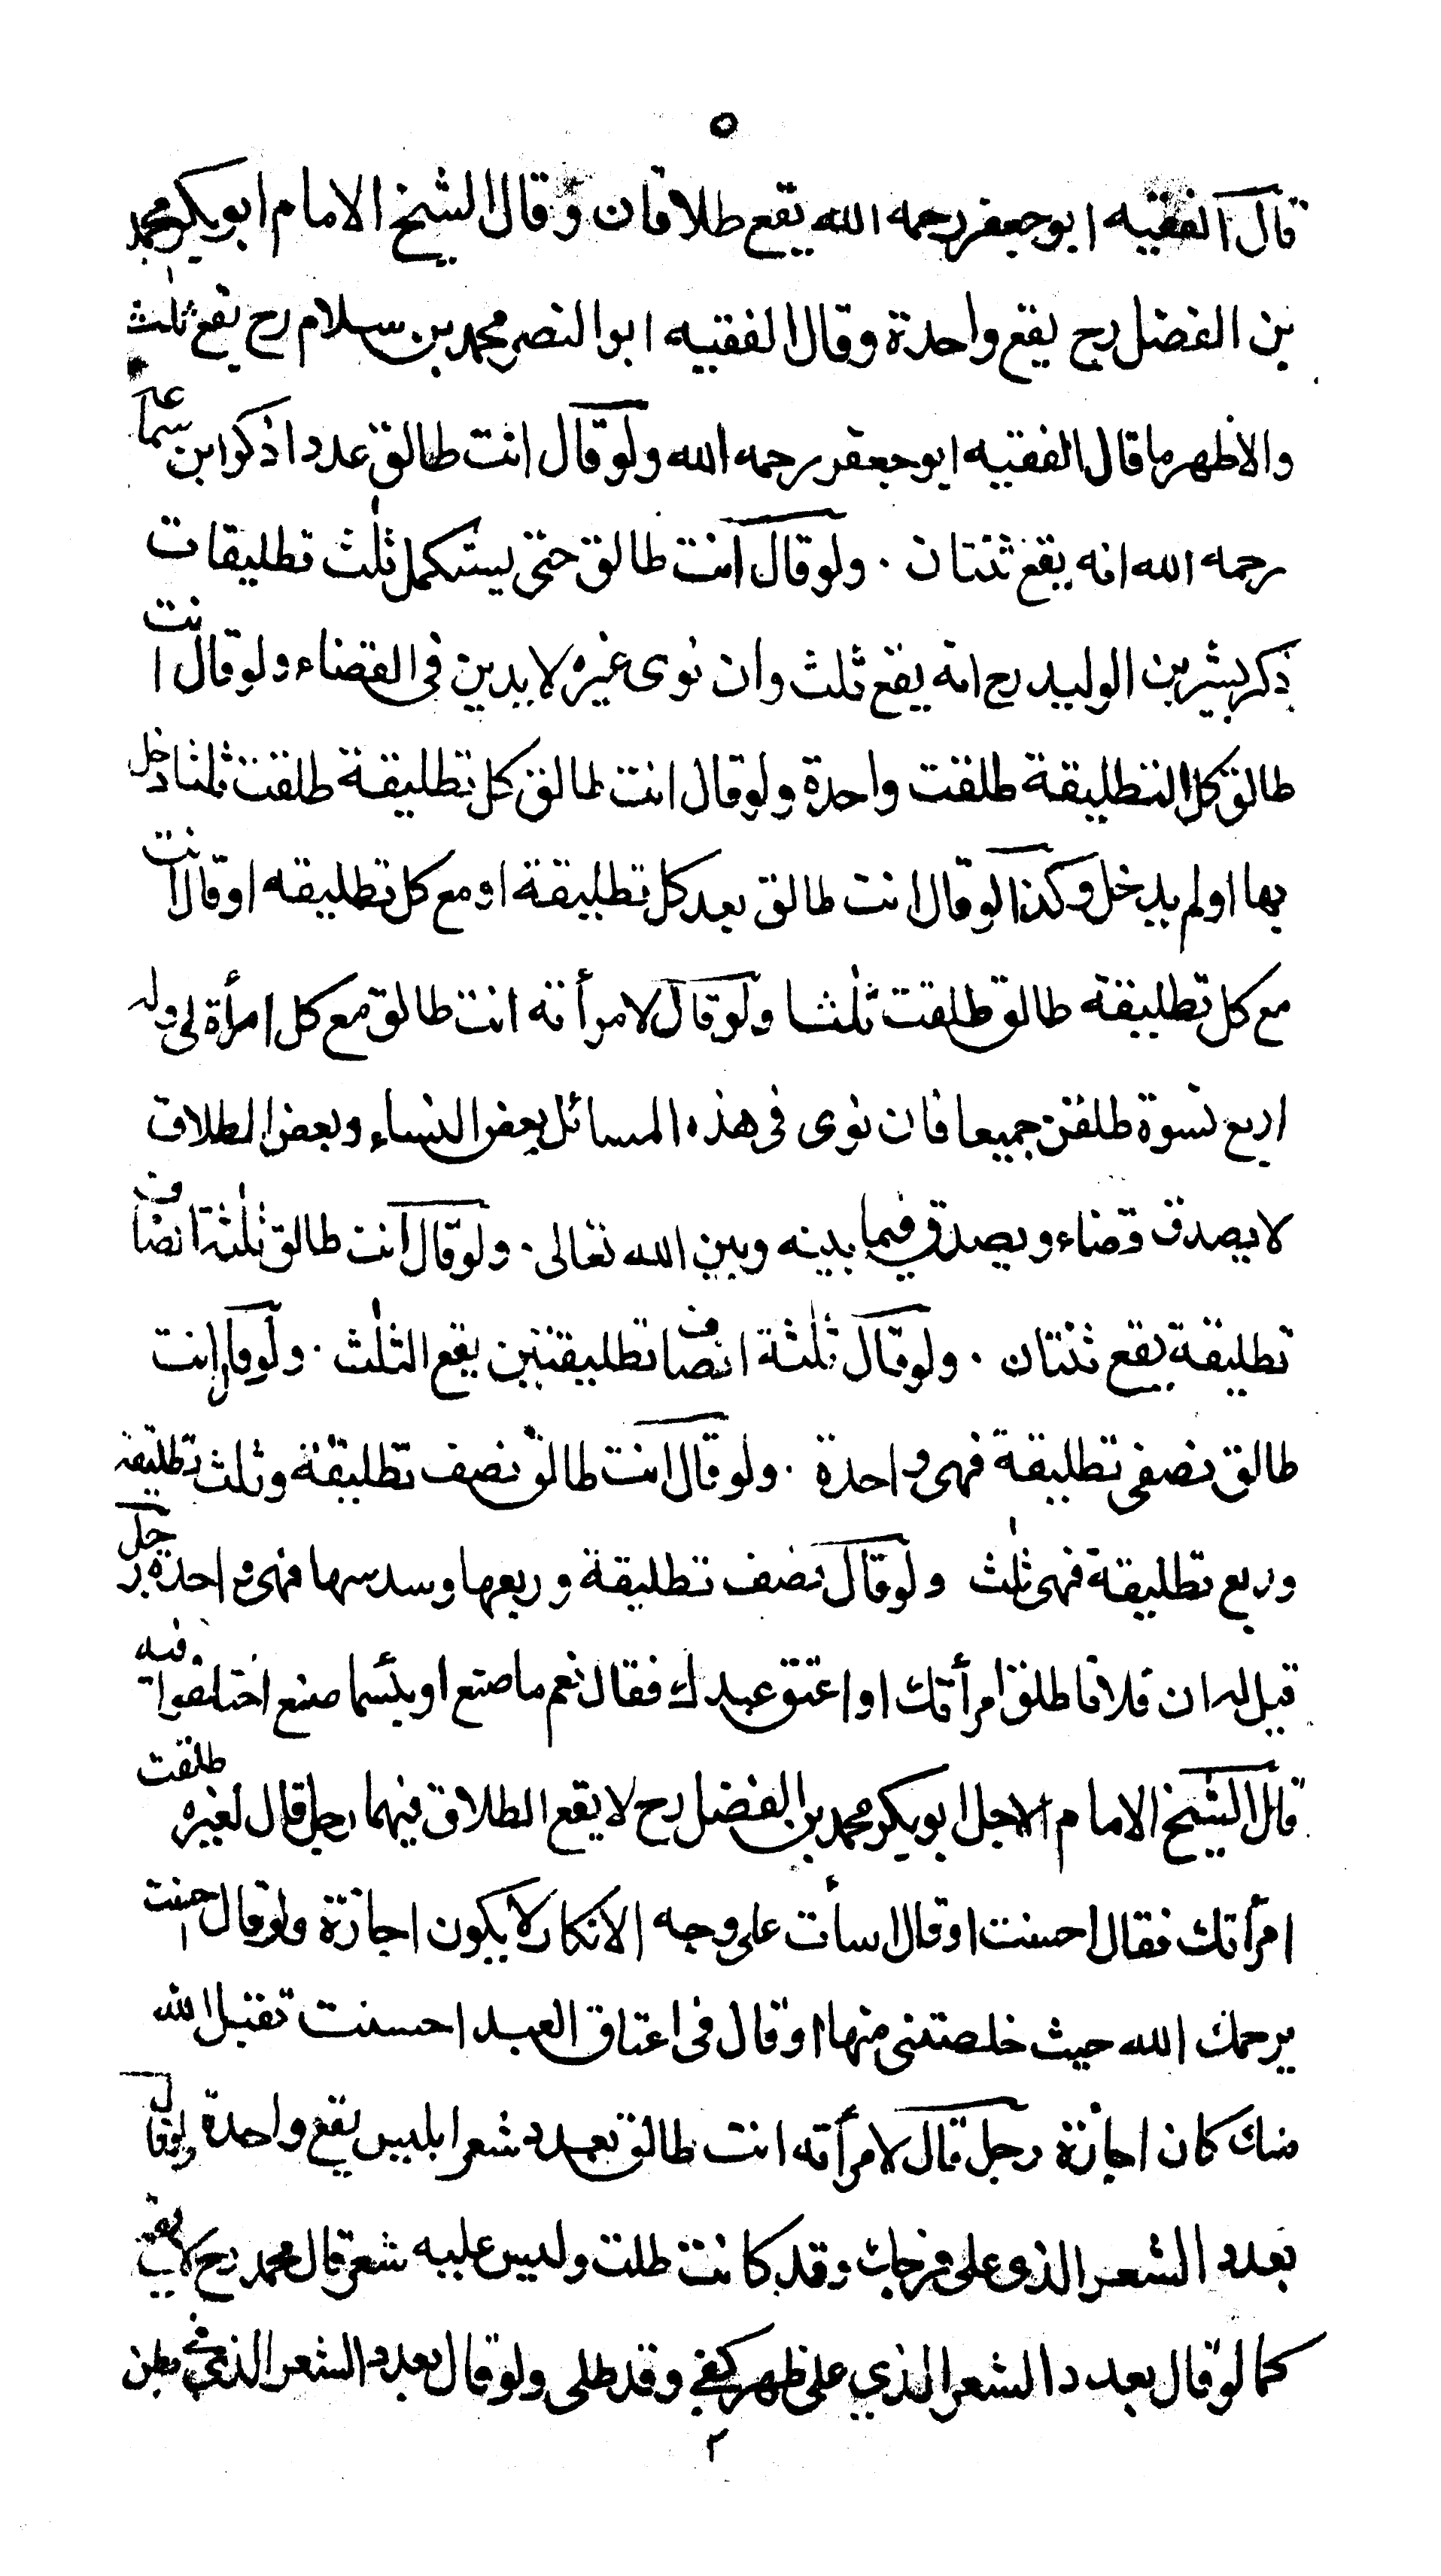 ٥
قال الفقيه ابو جعفر رحمه الله يقع طلاقان وقال الشيخ الامام ابو بكر محمد
بن الفضل رح يقع واحدة وقال الفقيه ابو النصر محمد بن سلام رح يقع ثلث
والاظهر ما قال الفقيه ابو جعفر رحمه الله ولو قال انت طالق عددا ذكر ابن سماعة
رحمه الله انه يقع ثنتان . ولو قال انت طالق حتى يستكمل ثلث تطليقات
ذكر بشر بن الوليد رح انه يقع ثلث وان نوى غيره لا يدين فى القضاء ولو قال انت
طالق كل التطليقة طلقت واحدة ولو قال انت طالق كل تطليقة طلقت ثلثا دخل
بها او لم يدخل وكذا لو قال انت طالق بعد كل تطليقة او مع كل تطليقه او قال انت
مع كل تطليقة طالق طلقت ثلثا ولو قال لامرأته انت طالق مع كل امرأة لى وله
اربع نسوة طلقن جميعا فان نوى فى هذه المسائل بعض النساء وبعض الطلاق
لا يصدق قضاء ويصدق فيما بينه وبين الله تعالى . ولو قال انت طالق ثلثة انصاف
تطليقة يقع ثنتان . ولو قال ثلثة انصاف تطليقتين يقع الثلث . ولو قال انت
طالق نصفى تطليقة فهى واحدة . ولو قال انت طالق نصف تطليقة وثلث تطليقة
وربع تطليقة فهى ثلث ولو قال نصف تطليقة وربعها وسدسها فهى واحدة رجل
قيل له ان فلانا طلق امرأتك او اعتق عبدك فقال نعم ما صنع او بئسما صنع اختلفوا فيه
قال الشيخ الامام الاجل ابو بكر محمد بن الفضل رح لا يقع الطلاق فيهما رجل قال لغيره طلقت
امرأتك فقال احسنت او قال اسأت على وجه الانكار لا يكون اجازة ولو قال احسنت
يرحمك الله حيث خلصتنى منها او قال فى اعتاق العبد احسنت تقبل الله
منك كان اجازة رجل قال لامرأته انت طالق بعدد شعر ابليس يقع واحدة ولو قال
بعدد الشعر الذى على فرجك وقد كانت طلت وليس عليه شعر قال محمد رح لا يقع
كما لو قال بعدد الشعر الذي على ظهر كفي وقد طلى ولو قال بعدد الشعر الذي في بطن
٢